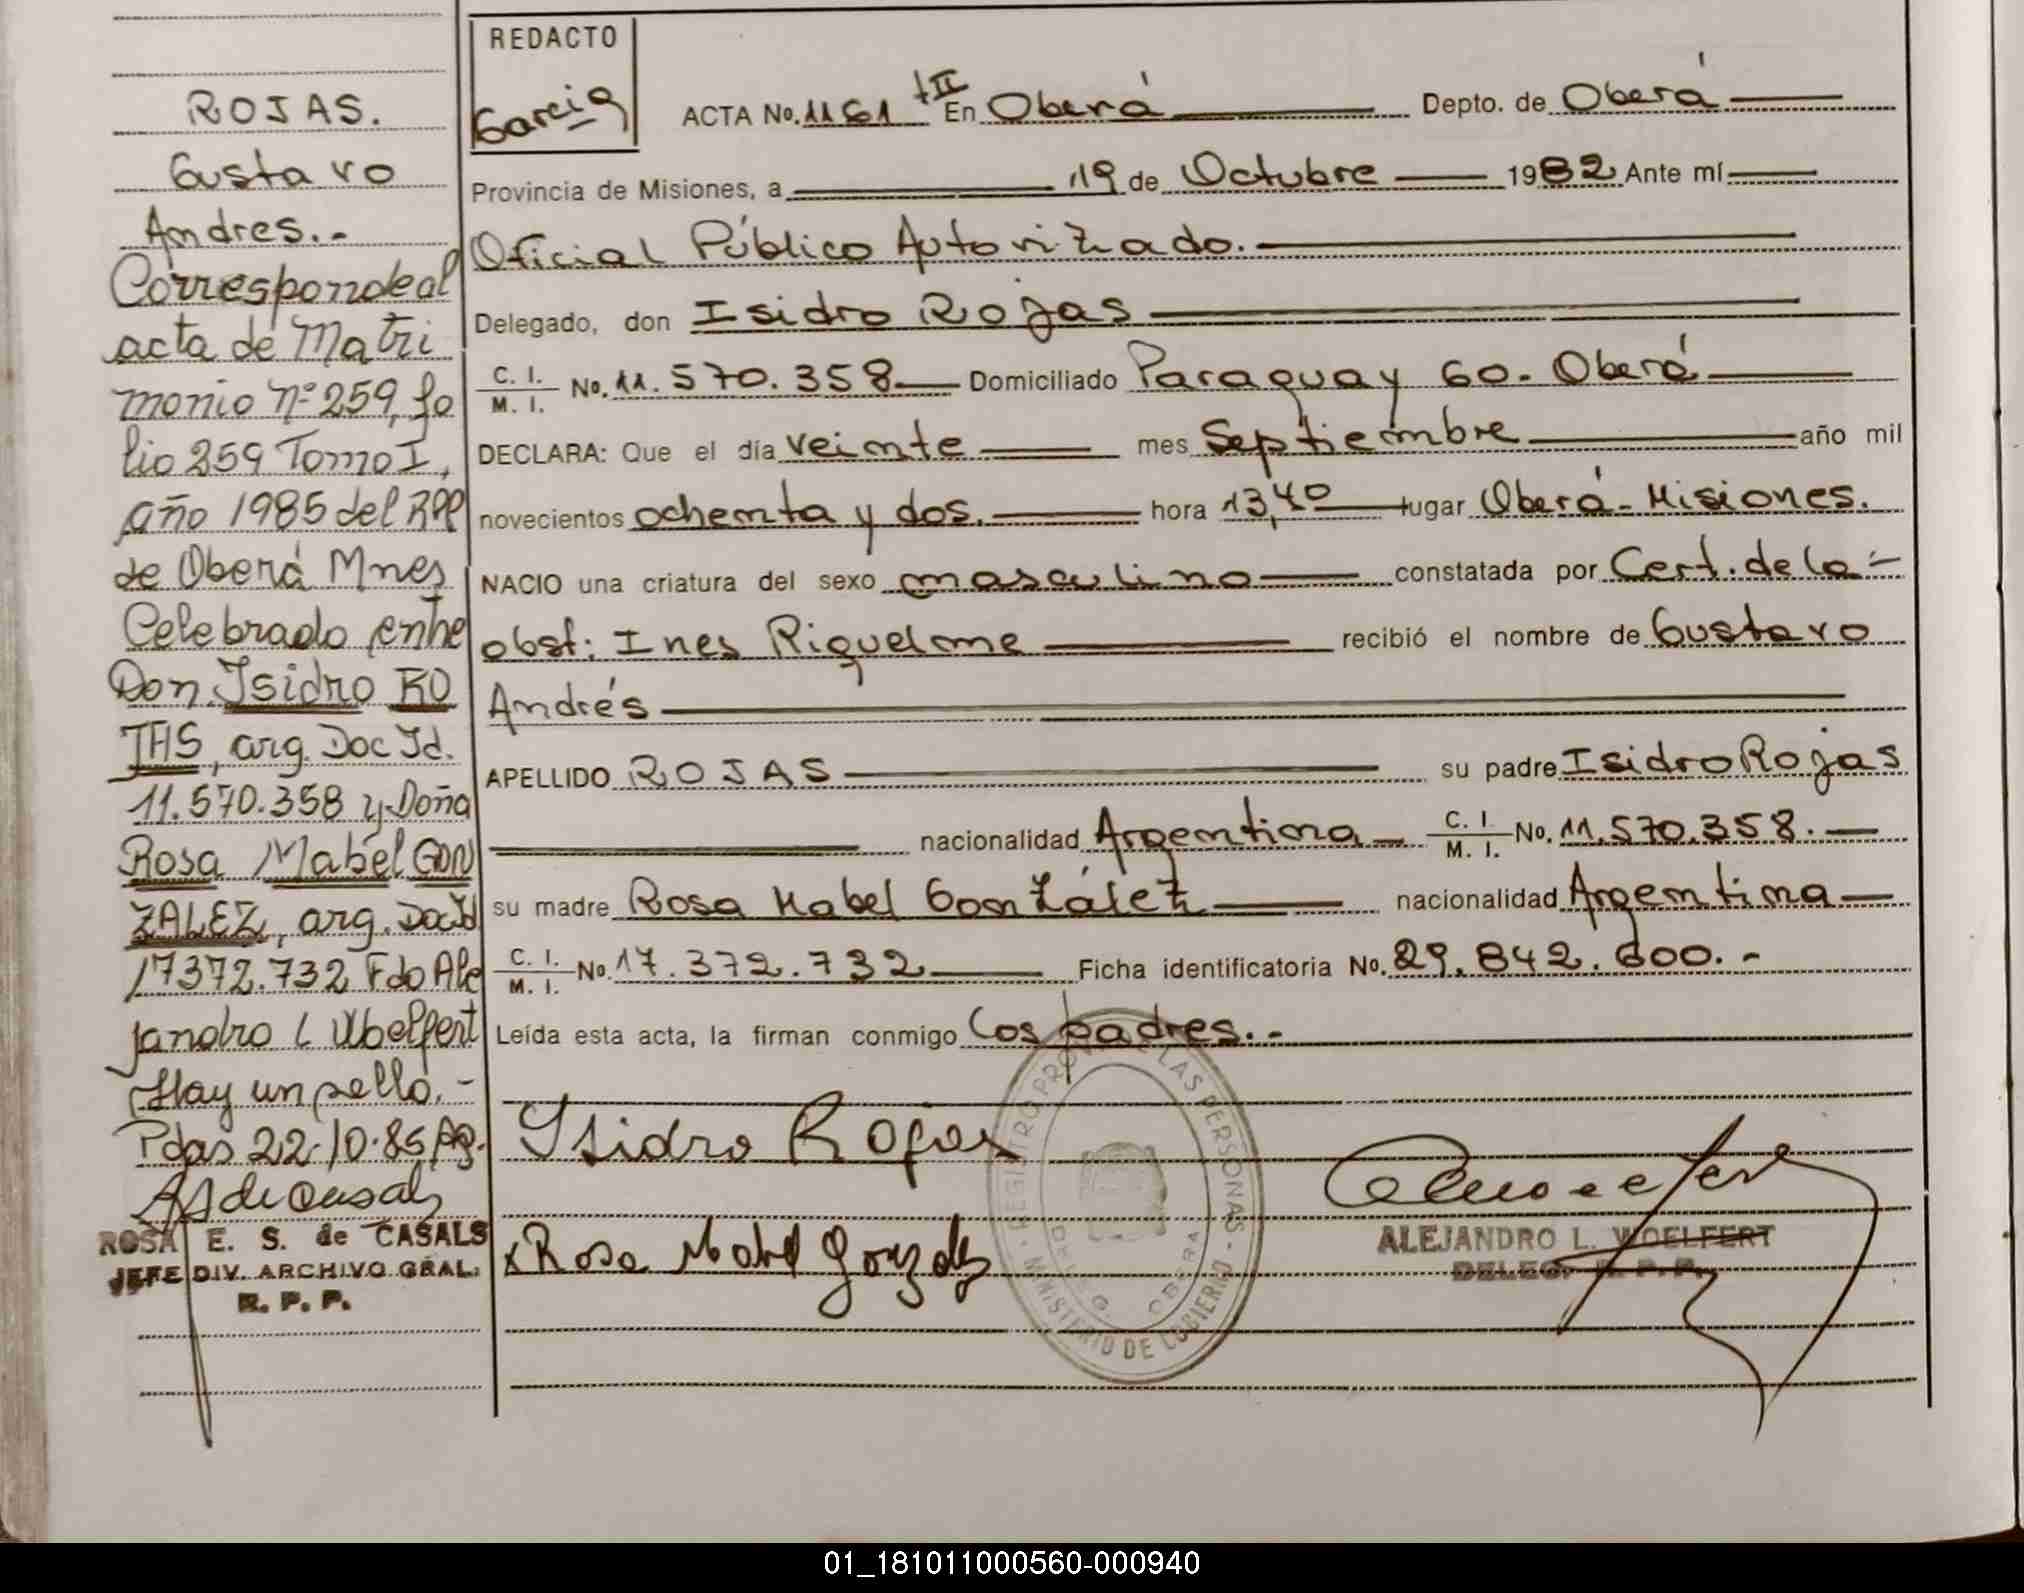 ROJAS.
Gustavo
Andres.-
Corresponde al
acta de Matri
monio nº 259, fo
lio 259 Tomo I,
año 1985 del RPP
de Oberá Mnes
Celebrado entre
Don Isidro RO
JAS, arg. Doc Id.
11.570.358 y Doña
Rosa Mabel GON
ZALEZ, arg. Doc Id
17372.732 Fdo Ale
jandro L Woelfert
Hay un sello.-
Pdas 22.10.85
ROSA E. S. de CASALS
JEFE DIV. ARCHIVO GRAL.
R. P. P.
REDACTO
Garcia
ACTA No. 1161 tII En Oberá Depto. de Oberá
Provincia de Misiones, a 19 de Octubre 1982 Ante mí
Oficial Público Autorizado.
Delegado, don Isidro Rojas
C. I. / M. I. No. 11.570.358 Domiciliado Paraguay 60. Oberá
DECLARA: Que el día veinte mes Septiembre año mil
novecientos ochenta y dos. hora 13,40 lugar Oberá - Misiones.
NACIO una criatura del sexo masculino constatada por Cert. de la -
obst: Ines Riquelme recibió el nombre de Gustavo
Andrés
APELLIDO ROJAS su padre Isidro Rojas
nacionalidad Argentina C. I. / M. I. No. 11.570.358.
su madre Rosa Mabel González nacionalidad Argentina
C. I. / M. I. No. 17.372.732 Ficha identificatoria No. 29.842.600.-
Leída esta acta, la firman conmigo los padres.-
Isidro Rojas
x Rosa Mabel Gonzalez
REGISTRO PROV. DE LAS PERSONAS - MINISTERIO DE GOBIERNO
DELEG. OBERA
ALEJANDRO L. WOELFERT
DELEG. R. P. P.
01_181011000560-000940